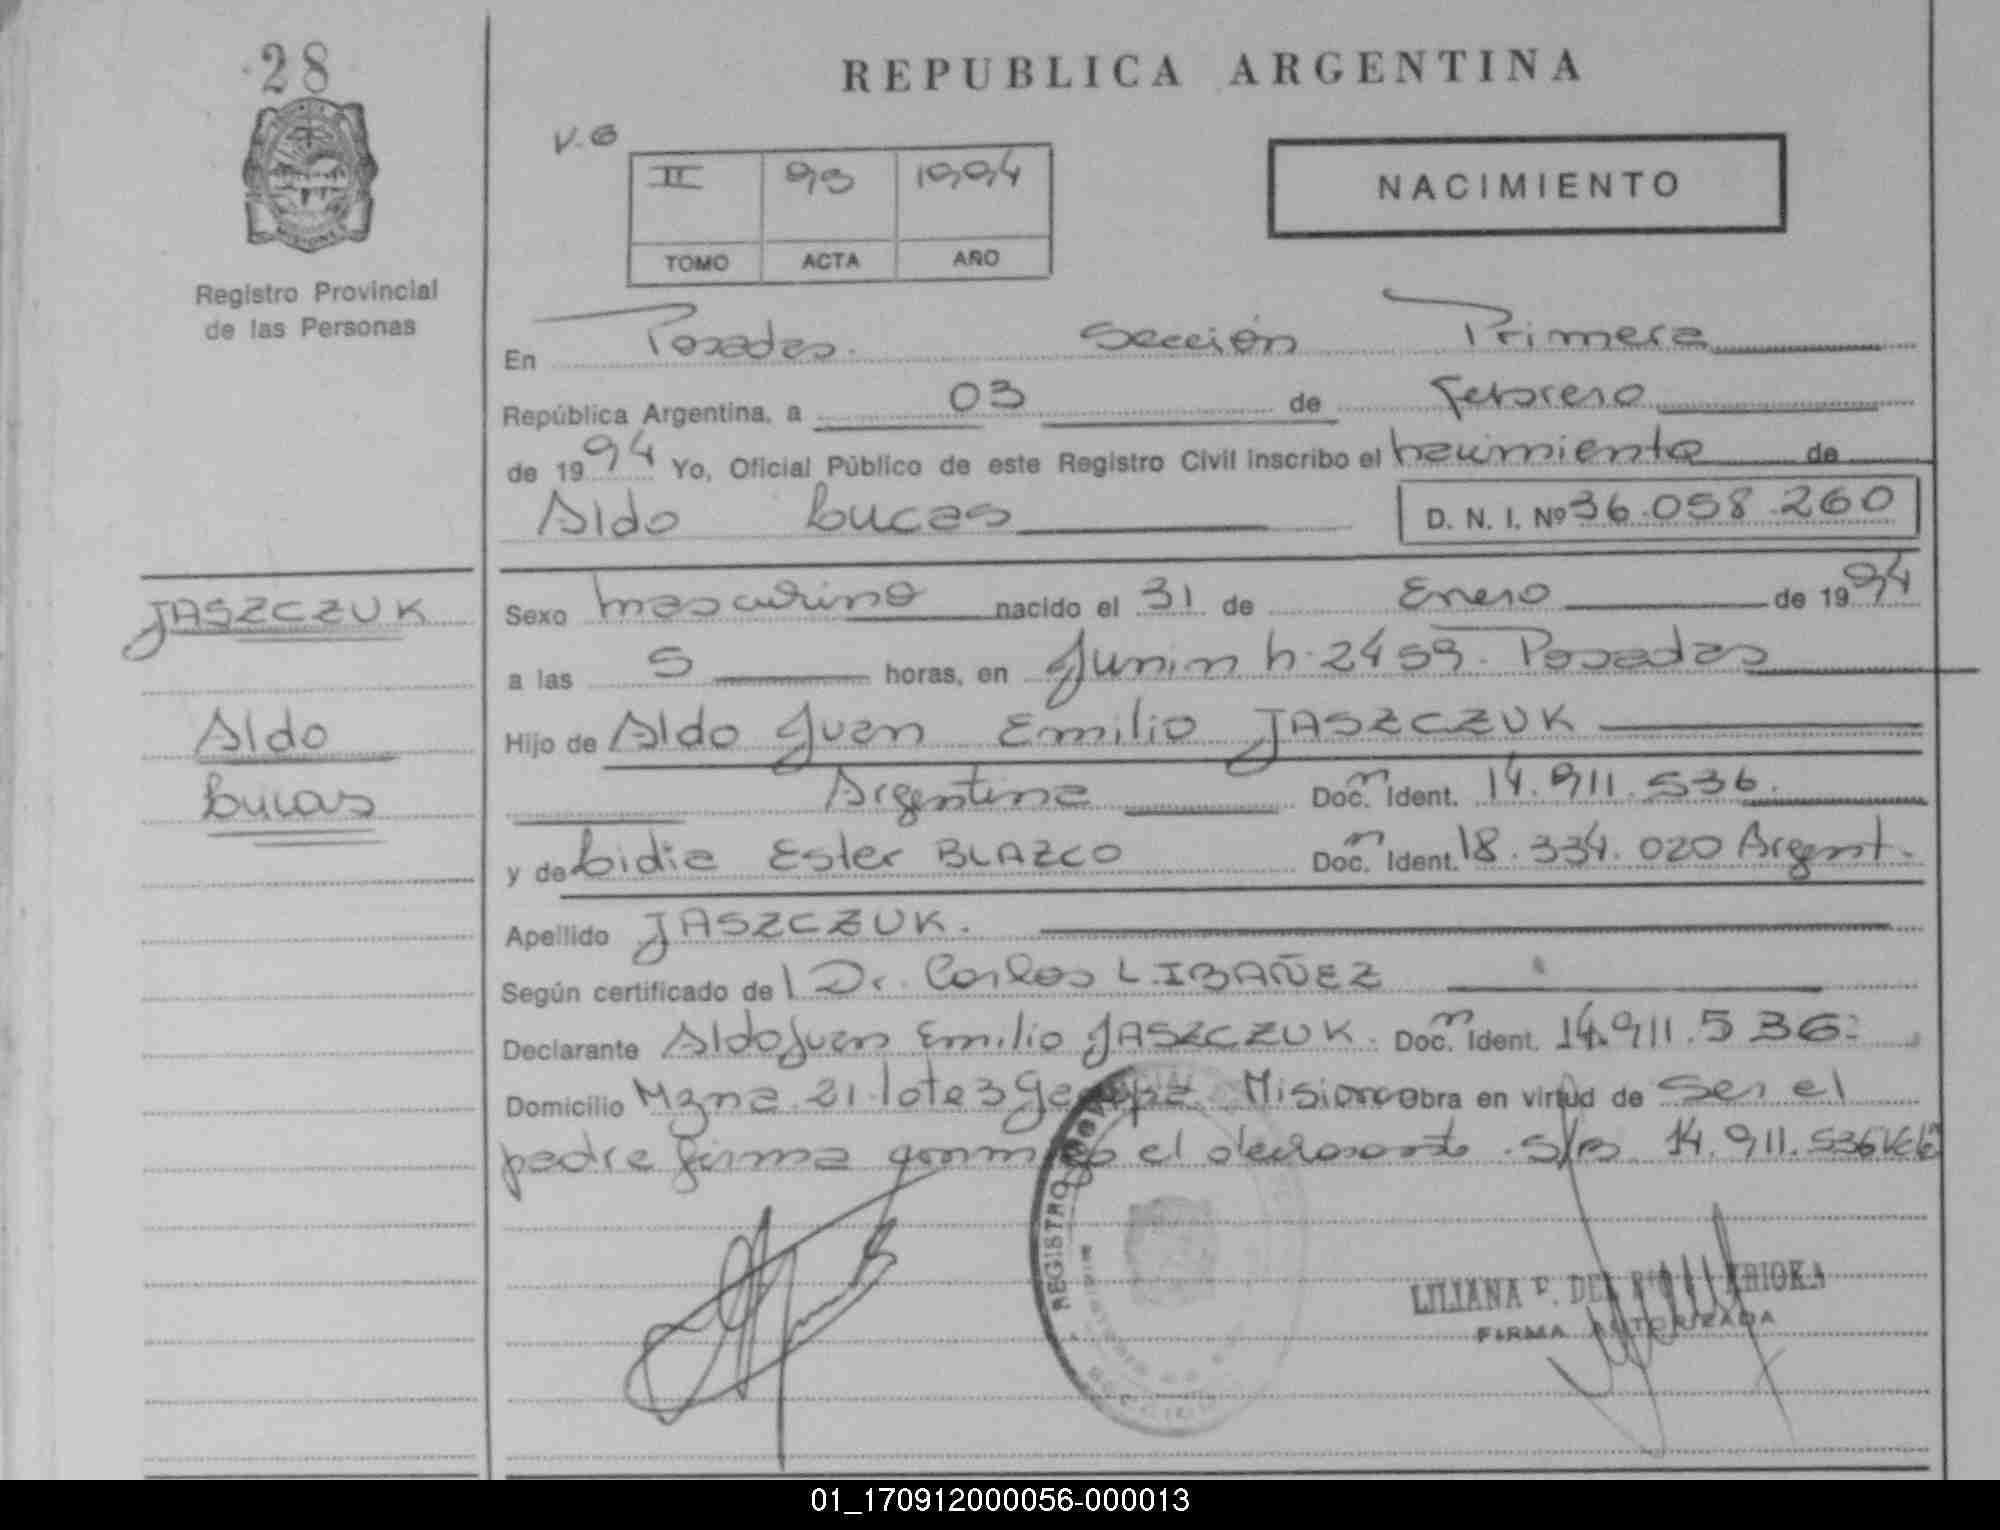 28
REPUBLICA ARGENTINA
V.G
II 93 1994
TOMO ACTA AÑO
NACIMIENTO
Registro Provincial
de las Personas
En Posadas. Sección Primera
República Argentina, a 03 de febrero
de 1994 Yo, Oficial Público de este Registro Civil inscribo el nacimiento de
Aldo Lucas D. N. I. Nº 36.058.260
JASZCZUK
Aldo
Lucas
Sexo masculino nacido el 31 de Enero de 1994
a las 5 horas, en Junin n. 2459. Posadas
Hijo de Aldo Juan Emilio JASZCZUK
Argentina Doc. Ident. 14.911.536.
y de Lidia Ester BLAZCO Doc. Ident. 18.334.020 Argent.
Apellido JASZCZUK.
Según certificado de Dr. Carlos L. IBAÑEZ
Declarante Aldo Juan Emilio JASZCZUK. Doc. Ident. 14.911.536
Domicilio Mzna 21 lote 3 Misiones obra en virtud de ser el
padre firma el declarante S/R 14.911.536
REGISTRO
LILIANA
FIRMA AUTORIZADA
01_170912000056-000013